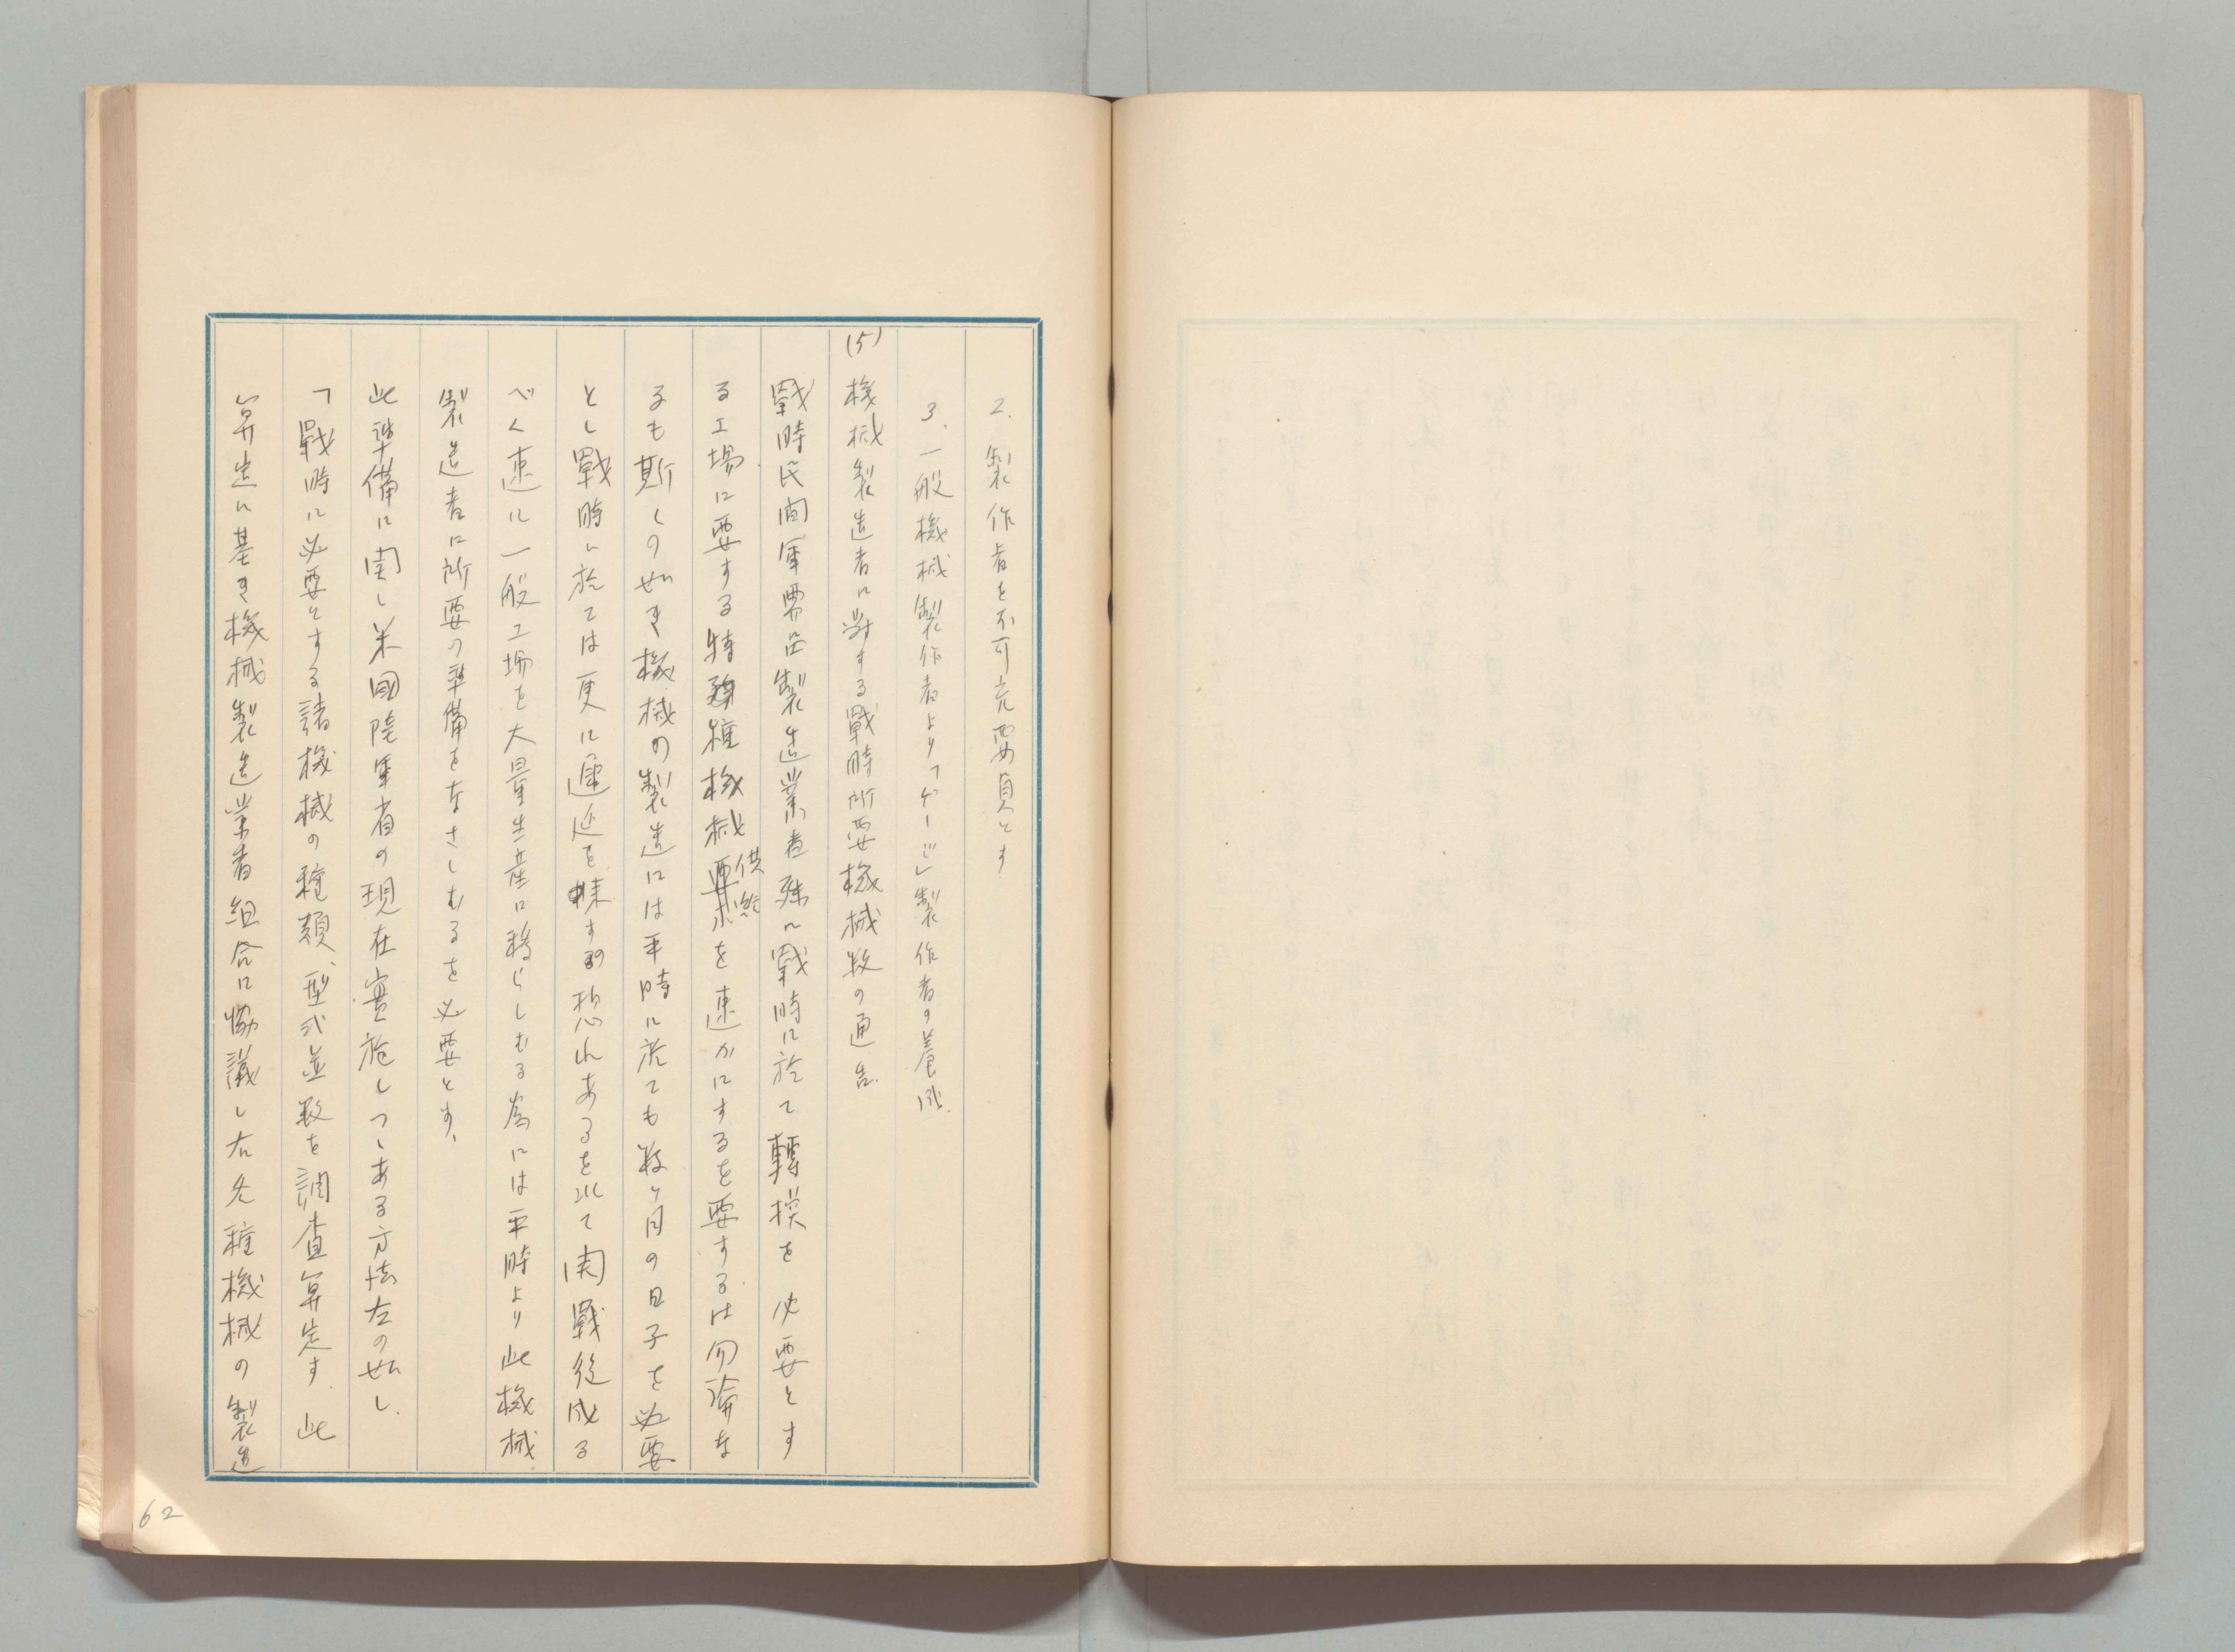 2. 製作者を不可充要員とす
3. 一般機械製作者より「ゲージ」製作者の養成.
(5) 機械製造者に對する戰時所要機械数の通告.
戰時民間軍需品製造業者殊に戰時に於て轉換を必要とす
る工場に要する特殊種機械供給を速かにするを要するは勿論な
るも斯くの如き機械の製造には平時に於ても数ヶ月の日子を必要
とし戰時に於ては更に遲延を来す恐れあるを以て開戰後成る
べく速に一般工場を大量生産に移らしむる為には平時より此機械
製造者に所要の準備をなさしむるを必要とす、
此準備に関し米國陸軍省の現在實施しつゝある方法左の如し.
「戰時に必要とする諸機械の種類、型式並数を調査算定す. 此
算定に基き機械製造業者組合に協議し右各種機械の製造
62